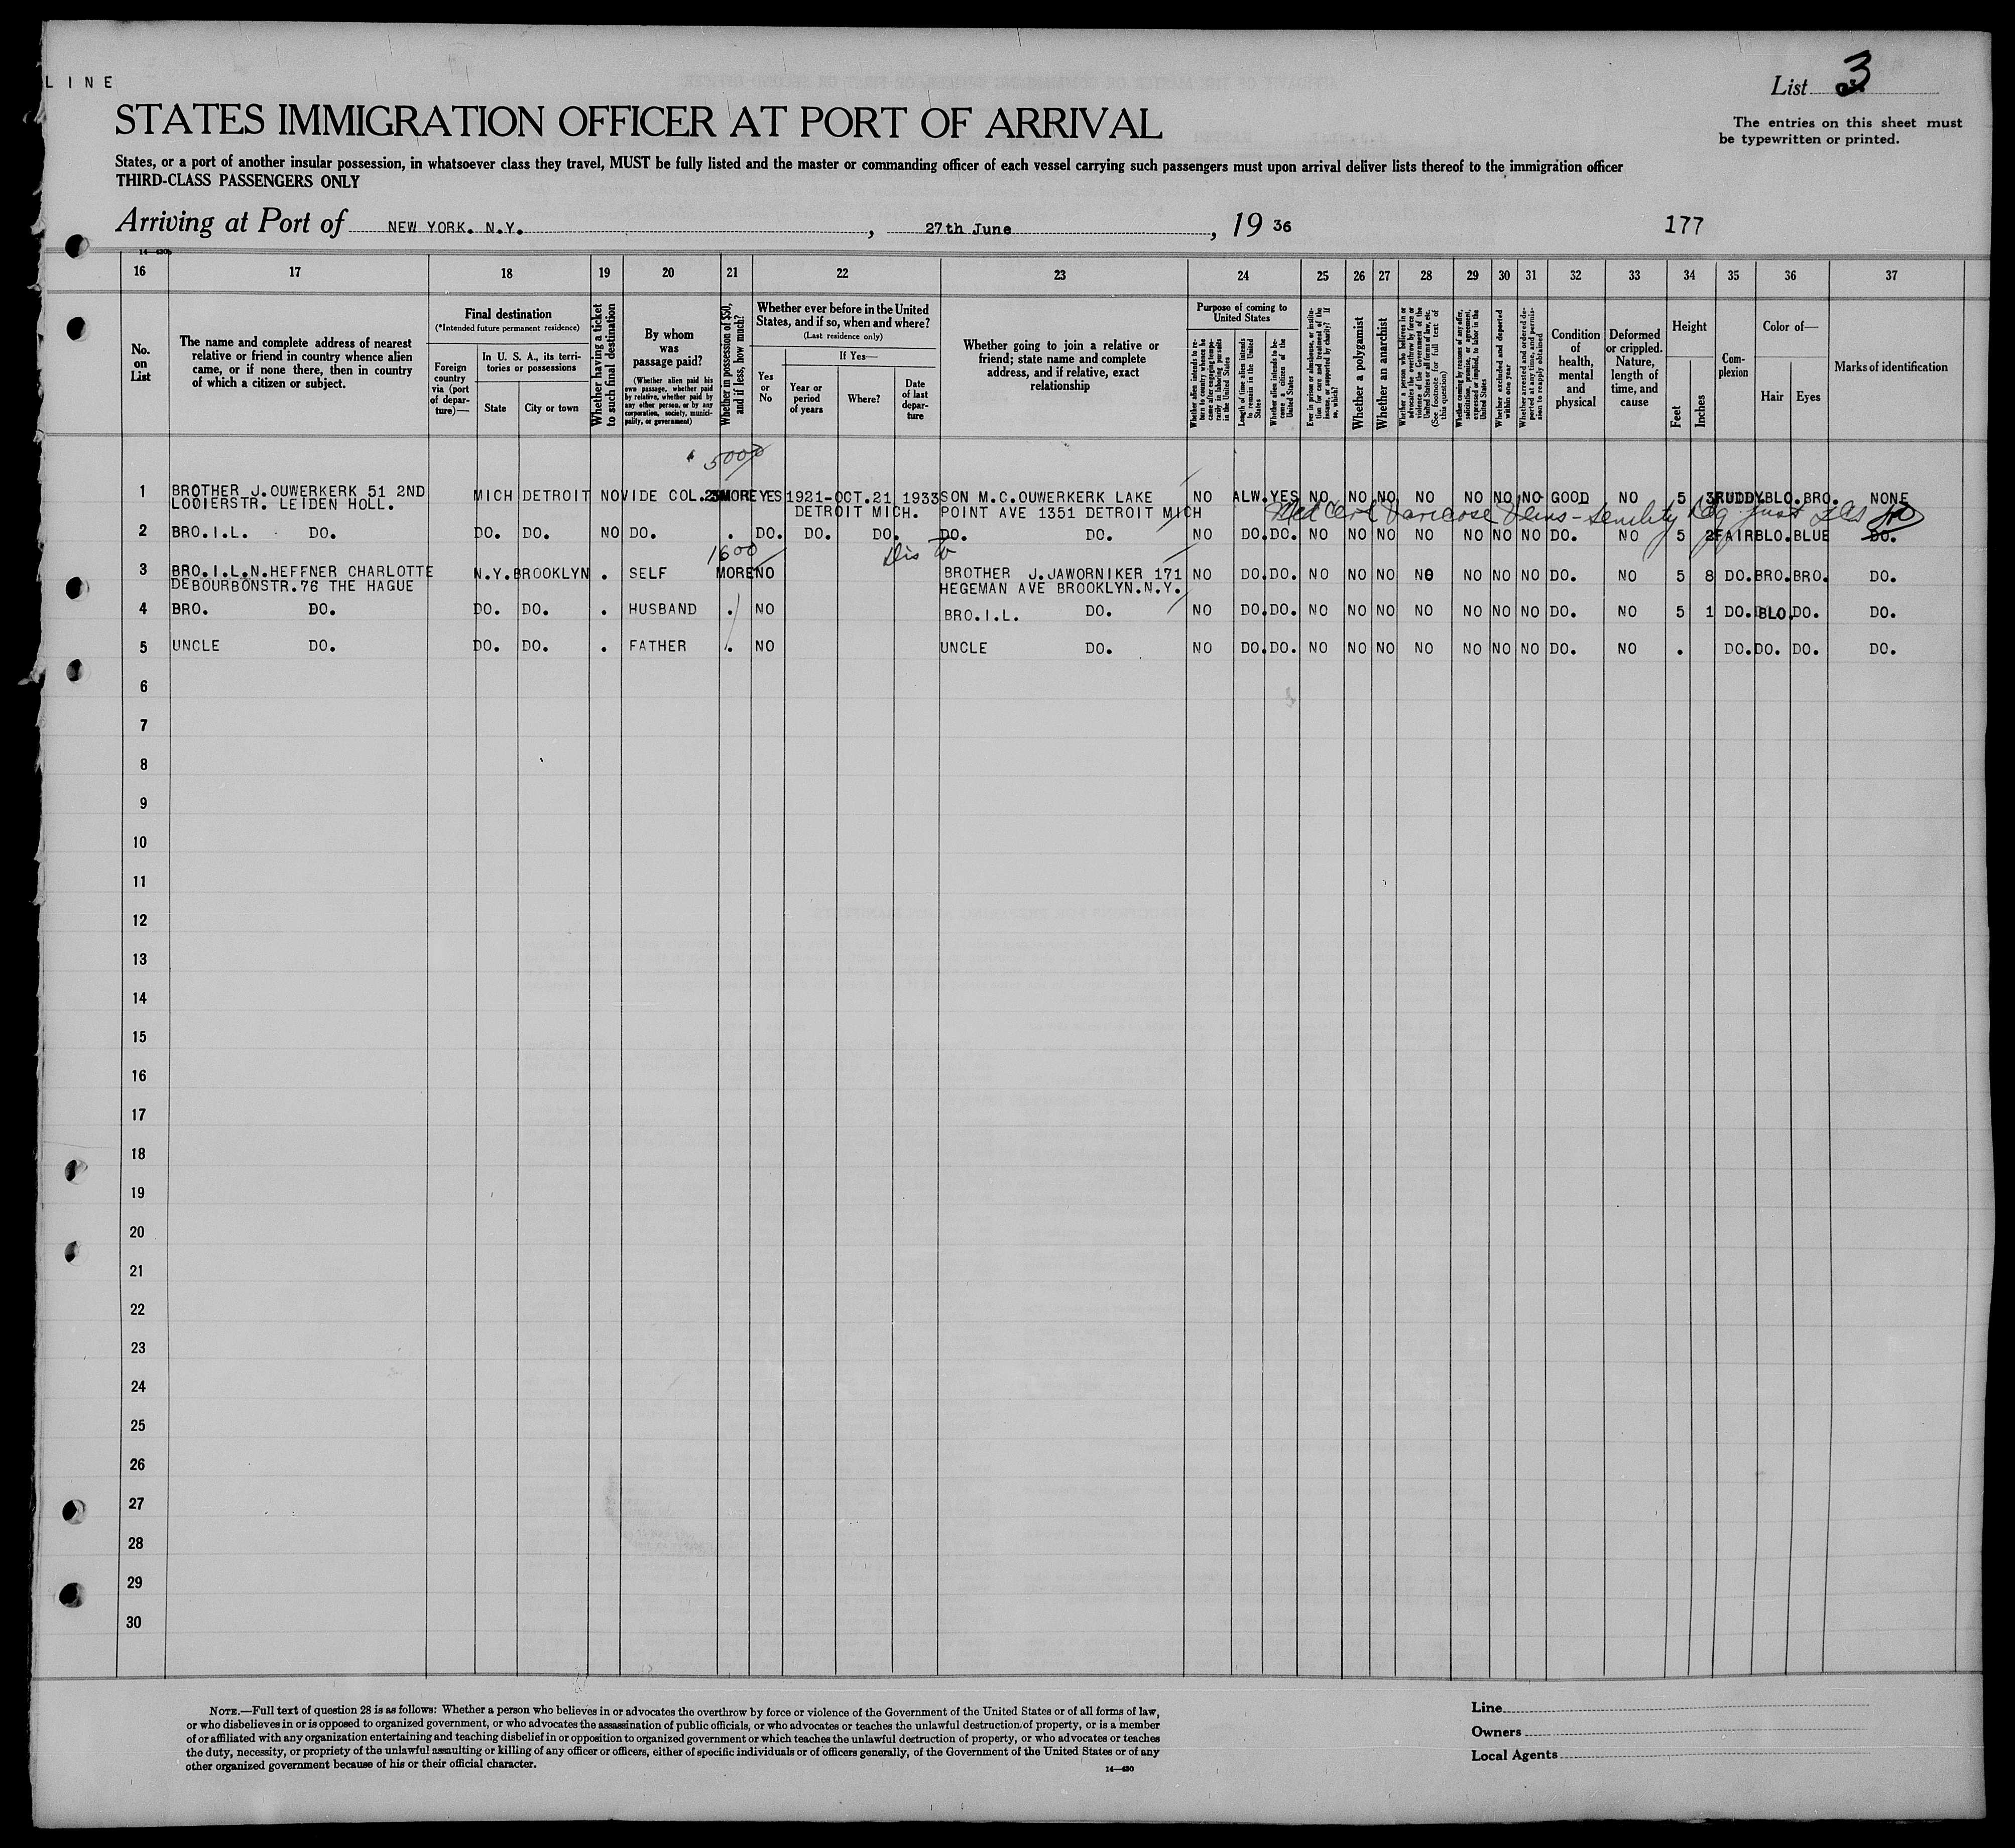 LINE
List 3
STATES IMMIGRATION OFFICER AT PORT OF ARRIVAL
The entries on this sheet must
be typewritten or printed.
States, or a port of another insular possession, in whatsoever class they travel, MUST be fully listed and the master or commanding officer of each vessel carrying such passengers must upon arrival deliver lists thereof to the immigration officer
THIRD-CLASS PASSENGERS ONLY
Arriving at Port of NEW YORK. N.Y. , 27th June , 19 36
177
14—430b
16 17 18 19 20 21 22 23 24 25 26 27 28 29 30 31 32 33 34 35 36 37
No. on List
The name and complete address of nearest
relative or friend in country whence alien
came, or if none there, then in country
of which a citizen or subject.
Final destination
(*Intended future permanent residence)
Foreign country via (port of departure)—
In U. S. A., its territories or possessions
State
City or town
Whether having a ticket to such final destination
By whom was passage paid?
(Whether alien paid his own passage, whether paid by relative, whether paid by any other person, or by any corporation, society, municipality, or government)
Whether in possession of $50, and if less, how much?
Whether ever before in the United
States, and if so, when and where?
(Last residence only)
Yes or No
If Yes—
Year or period of years
Where?
Date of last departure
Whether going to join a relative or
friend; state name and complete
address, and if relative, exact
relationship
Purpose of coming to United States
Whether alien intends to return to country whence he came after engaging temporarily in laboring pursuits in the United States
Length of time alien intends to remain in the United States
Whether alien intends to become a citizen of the United States
Ever in prison or almshouse, or institution for care and treatment of the insane, or supported by charity? If so, which?
Whether a polygamist
Whether an anarchist
Whether a person who believes in or advocates the overthrow by force or violence of the Government of the United States or all forms of law, etc. (See footnote for full text of this question)
Whether coming by reason of any offer, solicitation, promise, or agreement, expressed or implied, to labor in the United States
Whether excluded and deported within one year
Whether arrested and ordered deported at any time, and permission to reapply obtained
Condition of health, mental and physical
Deformed or crippled. Nature, length of time, and cause
Height
Feet
Inches
Complexion
Color of—
Hair
Eyes
Marks of identification
5000
1 BROTHER J.OUWERKERK 51 2ND MICH DETROIT NO VIDE COL. MORE YES 1921-OCT.21 1933 SON M.C.OUWERKERK LAKE NO ALW. YES NO NO NO NO NO NO NO GOOD NO 5 3 RUDDY BLO. BRO. NONE
LOOIERSTR. LEIDEN HOLL. DETROIT MICH. POINT AVE 1351 DETROIT MICH
Med Cert Varicose Veins - Senility
2 BRO.I.L. DO. DO. DO. NO DO. . DO. DO. DO. DO. DO. NO DO. DO. NO NO NO NO NO NO NO DO. NO 5 2 FAIR BLO. BLUE DO.
1600
3 BRO.I.L.N.HEFFNER CHARLOTTE N.Y. BROOKLYN . SELF MORE NO BROTHER J.JAWORNIKER 171 NO DO. DO. NO NO NO NO NO NO NO DO. NO 5 8 DO. BRO. BRO. DO.
DEBOURBONSTR.76 THE HAGUE HEGEMAN AVE BROOKLYN.N.Y.
4 BRO. DO. DO. DO. . HUSBAND . NO BRO.I.L. DO. NO DO. DO. NO NO NO NO NO NO NO DO. NO 5 1 DO. BLO. DO. DO.
5 UNCLE DO. DO. DO. . FATHER . NO UNCLE DO. NO DO. DO. NO NO NO NO NO NO NO DO. NO . DO. DO. DO. DO.
6
7
8
9
10
11
12
13
14
15
16
17
18
19
20
21
22
23
24
25
26
27
28
29
30
NOTE.—Full text of question 28 is as follows: Whether a person who believes in or advocates the overthrow by force or violence of the Government of the United States or of all forms of law,
or who disbelieves in or is opposed to organized government, or who advocates the assassination of public officials, or who advocates or teaches the unlawful destruction of property, or is a member
of or affiliated with any organization entertaining and teaching disbelief in or opposition to organized government or which teaches the unlawful destruction of property, or who advocates or teaches
the duty, necessity, or propriety of the unlawful assaulting or killing of any officer or officers, either of specific individuals or of officers generally, of the Government of the United States or of any
other organized government because of his or their official character.
14—430
Line
Owners
Local Agents